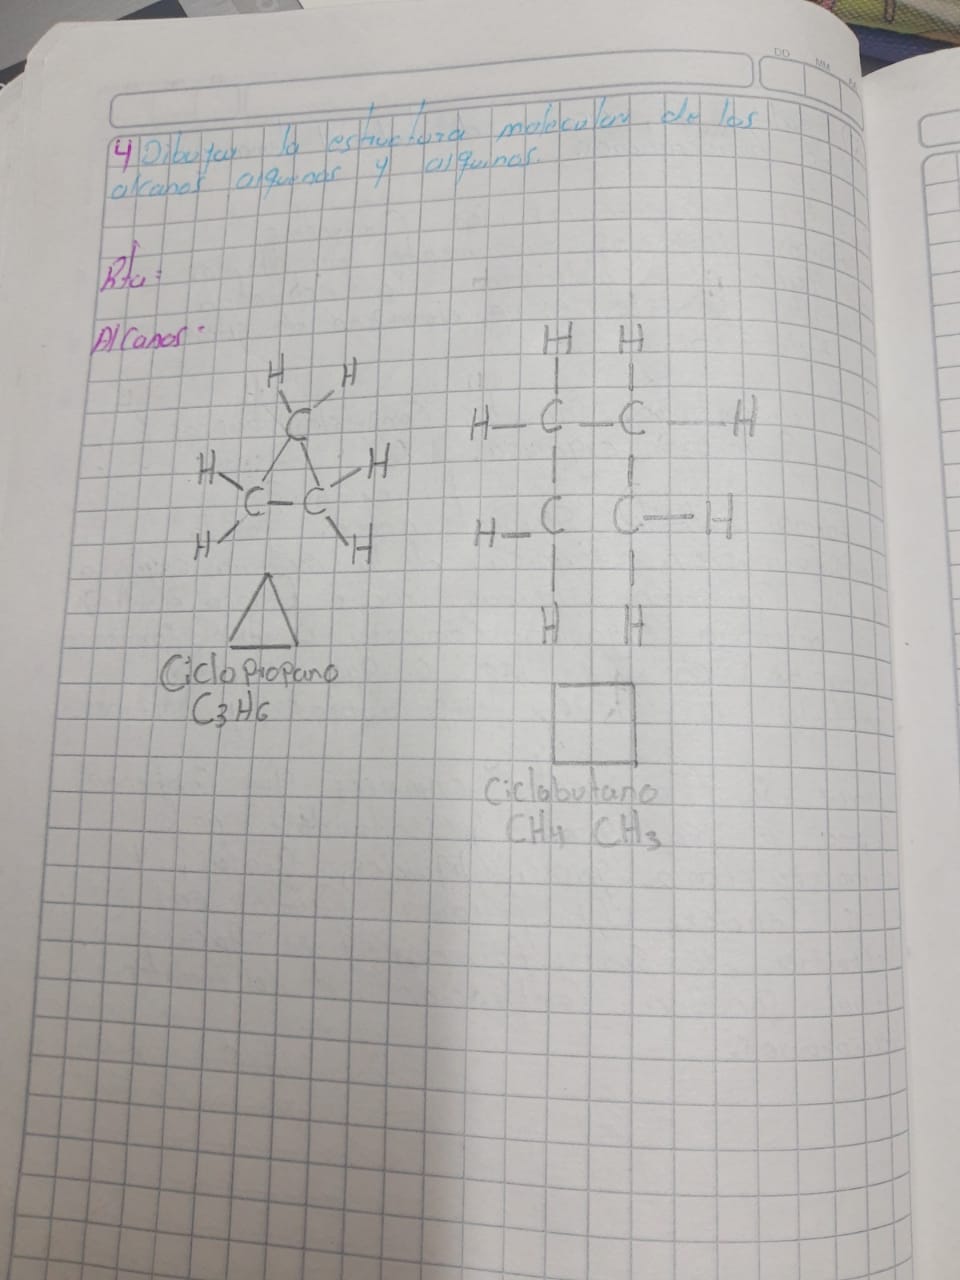 DD MM
4 Dibujar la estructura molecular de los
alcanos alquenos y alquinos.
Rta:
Alcanos:
H H
C
H H
C C
H H
Ciclo propano
C3H6
H H
H C C H
H C C H
H H
Ciclobutano
CH4 CH3